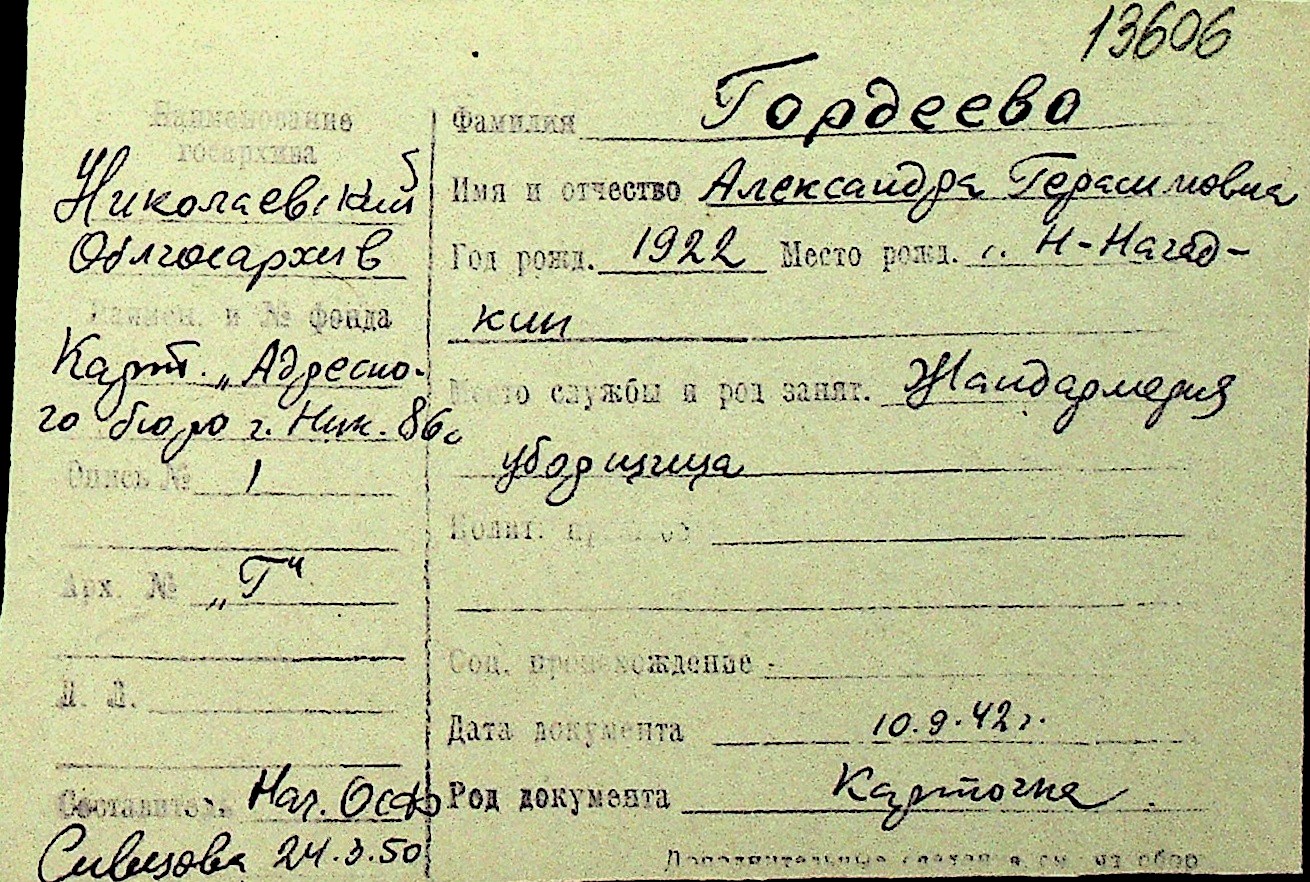 13606
Наименование
госархива
Николаевский
Облгосархив
Наимен. и № фонда
Карт. „Адресно-
го бюро г. Ник.
Опись № 1
Арх. № „Г“
Л. Л.
Составитель Нач. ОСФ
24.3.50
Фамилия Гордеева
Имя и отчество Александра Герасимовна
Год рожд. 1922 Место рожд. Н-Нагад-
кин
Место службы и род занят. Жандармерия
уборщица
Полит.
Соц. происхождение
Дата документа 10.9.42 г.
Род документа Карточка
Дополнительные сведения см. на обор